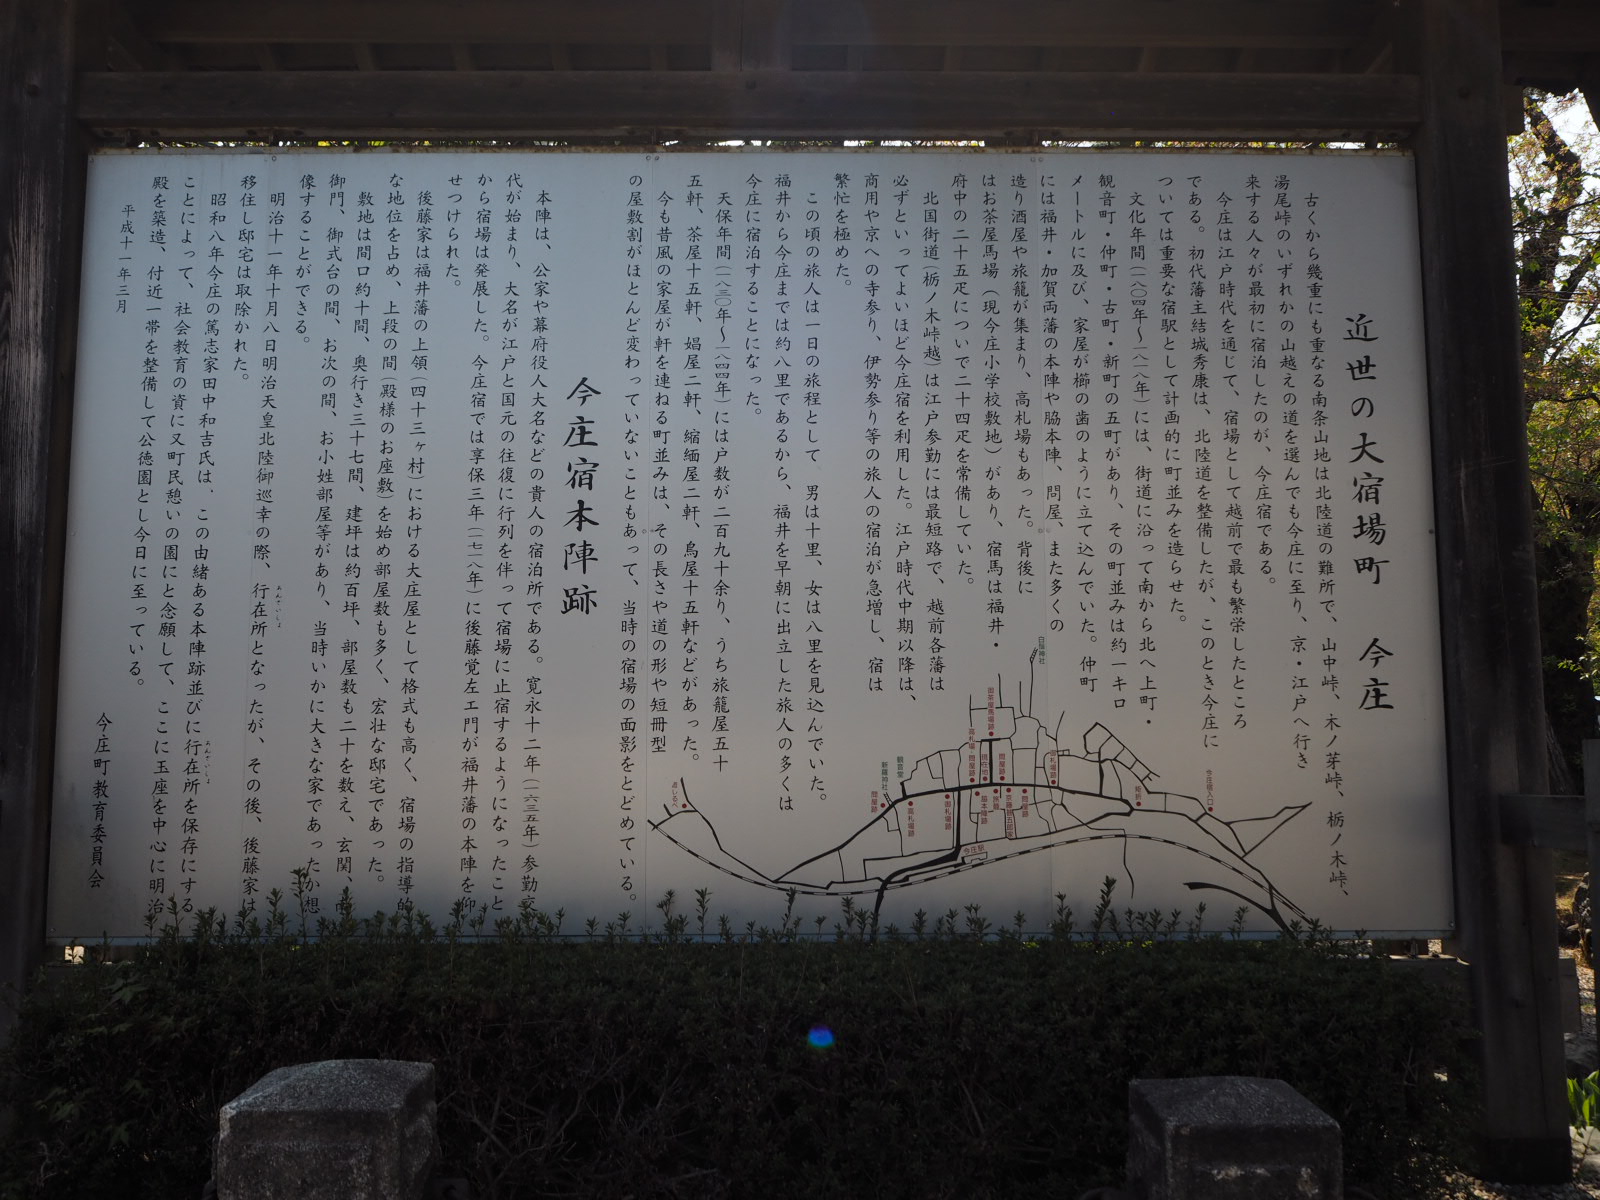 近世の大宿場町　今庄
古くから幾重にも重なる南条山地は北陸道の難所で、山中峠、木ノ芽峠、栃ノ木峠、
湯尾峠のいずれかの山越えの道を選んでも今庄に至り、京・江戸へ行き
来する人々が最初に宿泊したのが、今庄宿である。
今庄は江戸時代を通じて、宿場として越前で最も繁栄したところ
である。初代藩主結城秀康は、北陸道を整備したが、このとき今庄に
ついては重要な宿駅として計画的に町並みを造らせた。
文化年間(一八〇四年〜一八一八年)には、街道に沿って南から北へ上町・
観音町・仲町・古町・新町の五町があり、その町並みは約一キロ
メートルに及び、家屋が櫛の歯のように立て込んでいた。仲町
には福井・加賀両藩の本陣や脇本陣、問屋、また多くの
造り酒屋や旅籠が集まり、高札場もあった。背後に
はお茶屋馬場(現今庄小学校敷地)があり、宿馬は福井・
府中の二十五疋についで二十四疋を常備していた。
北国街道(栃ノ木峠越)は江戸参勤には最短路で、越前各藩は
必ずといってよいほど今庄宿を利用した。江戸時代中期以降は、
商用や京への寺参り、伊勢参り等の旅人の宿泊が急増し、宿は
繁忙を極めた。
この頃の旅人は一日の旅程として　男は十里、女は八里を見込んでいた。
福井から今庄までは約八里であるから、福井を早朝に出立した旅人の多くは
今庄に宿泊することになった。
天保年間(一八三〇年〜一八四四年)には戸数が二百九十余り、うち旅籠屋五十
五軒、茶屋十五軒、娼屋二軒、縮緬屋二軒、鳥屋十五軒などがあった。
今も昔風の家屋が軒を連ねる町並みは、その長さや道の形や短冊型
の屋敷割がほとんど変わっていないこともあって、当時の宿場の面影をとどめている。
今庄宿本陣跡
本陣は、公家や幕府役人大名などの貴人の宿泊所である。寛永十二年(一六三五年)参勤交
代が始まり、大名が江戸と国元の往復に行列を伴って宿場に止宿するようになったこと
から宿場は発展した。今庄宿では享保三年(一七一八年)に後藤覚左エ門が福井藩の本陣を仰
せつけられた。
後藤家は福井藩の上領(四十三ヶ村)における大庄屋として格式も高く、宿場の指導的
な地位を占め、上段の間(殿様のお座敷)を始め部屋数も多く、宏壮な邸宅であった。
敷地は間口約十間、奥行き三十七間、建坪は約百坪、部屋数も二十を数え、玄関、南
御門、御式台の間、お次の間、お小姓部屋等があり、当時いかに大きな家であったか想
像することができる。
明治十一年十月八日明治天皇北陸御巡幸の際、行在所となったが、その後、後藤家は
あんざいしょ
移住し邸宅は取除かれた。
昭和八年今庄の篤志家田中和吉氏は、この由緒ある本陣跡並びに行在所を保存にする
あんざいしょ
ことによって、社会教育の資に又町民憩いの園にと念願して、ここに玉座を中心に明治
殿を築造、付近一帯を整備して公徳園とし今日に至っている。
平成十一年三月
今庄町教育委員会
白鬚神社
御茶屋馬場跡
高札場
問屋跡
現在地
問屋跡
高札場跡
観音堂
新羅神社
問屋跡
高札場跡
御札場跡
脇本陣跡
旅籠
京藤甚五郎家
問屋跡
今庄駅
矩折
今庄宿入口
道しるべ